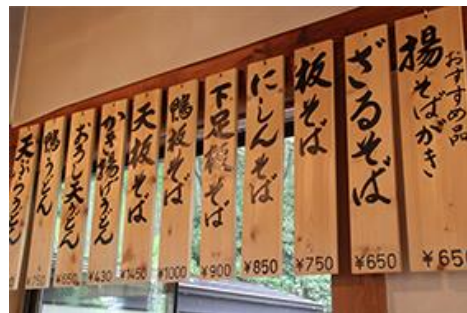 おすすめ品
揚そばがき
¥650
ざるそば
¥650
板そば
¥750
にしんそば
¥850
下足板そば
¥900
鴨板そば
¥1000
天板そば
¥1450
かき揚げうどん
¥430
おろし天うどん
¥650
鴨うどん
¥750
天ぷらうどん